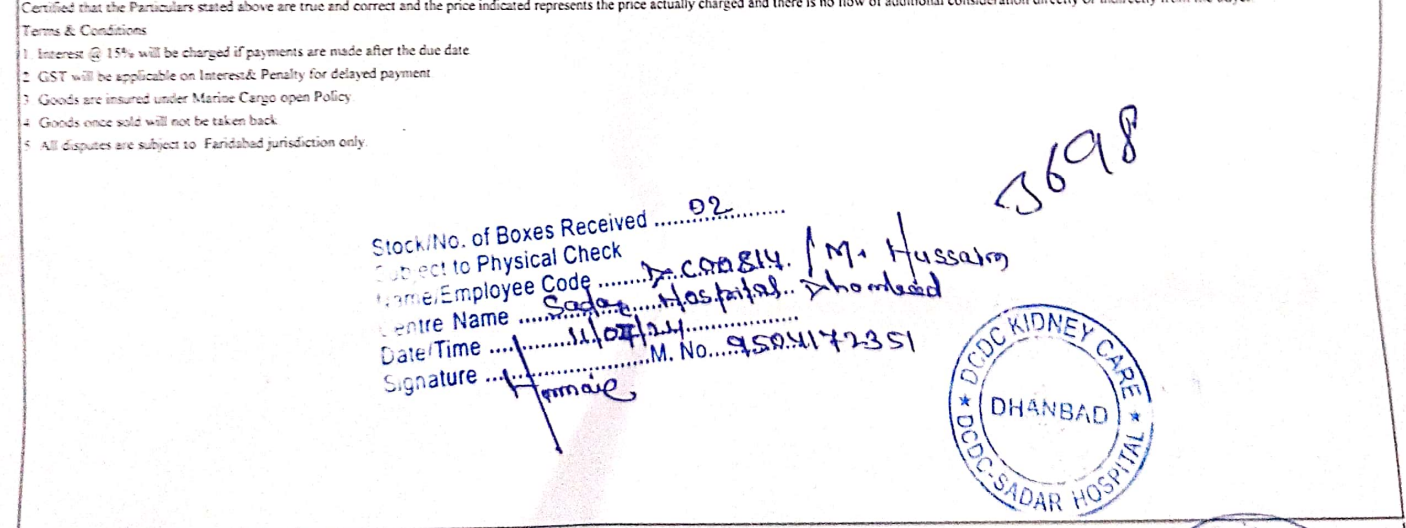 Certified that the Particulars stated above are true and correct and the price indicated represents the price actually charged and there is no flow of additional consideration directly or indirectly from the buyer
Terms & Conditions
1 Interest @ 15% will be charged if payments are made after the due date
2 GST will be applicable on Interest& Penalty for delayed payment
3 Goods are insured under Marine Cargo open Policy
4 Goods once sold will not be taken back
5 All disputes are subject to Faridabad jurisdiction only.
3698
Stock/No. of Boxes Received ......02..........
Subject to Physical Check
Name/Employee Code ........ / M. Hussain
Centre Name ........ Sadar Hospital..
Date/Time ........11/07/24................
Signature ........................M. No.....9504172351
DCDC KIDNEY CARE
DHANBAD
* DCDC-SADAR HOSPITAL *